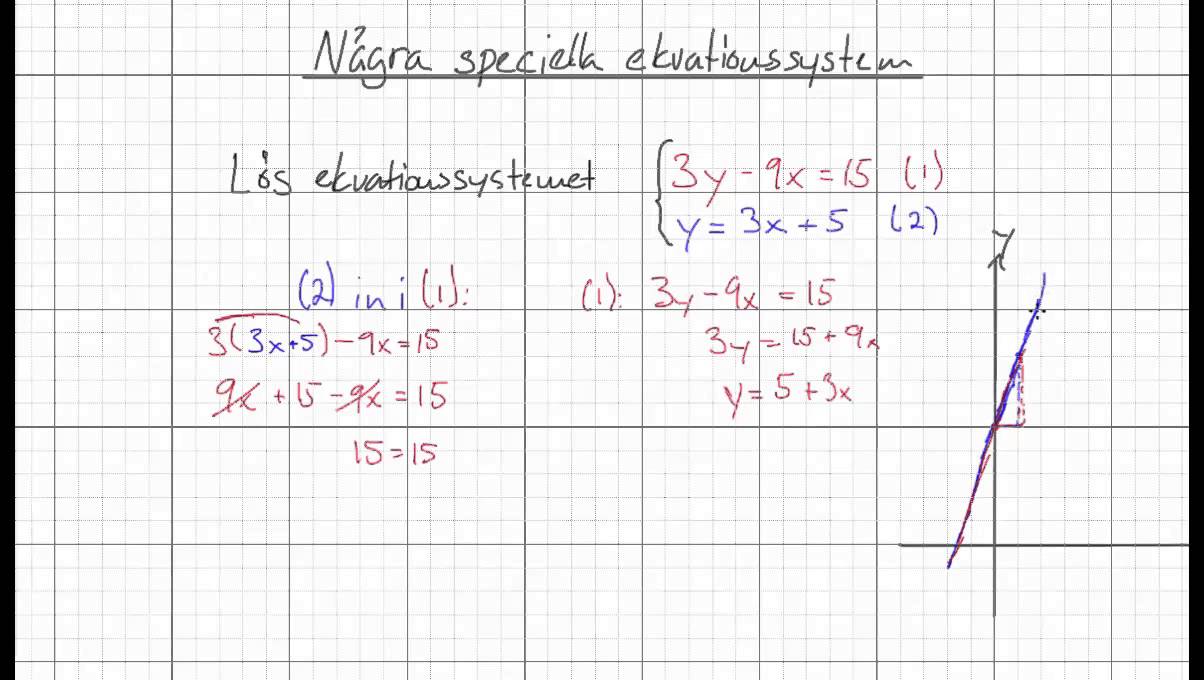 Några speciella ekvationssystem
Lös ekvationssystemet
3y - 9x = 15 (1)
y = 3x + 5 (2)
(2) in i (1):
3(3x+5) - 9x = 15
9x + 15 - 9x = 15
15 = 15
(1): 3y - 9x = 15
3y = 15 + 9x
y = 5 + 3x
y